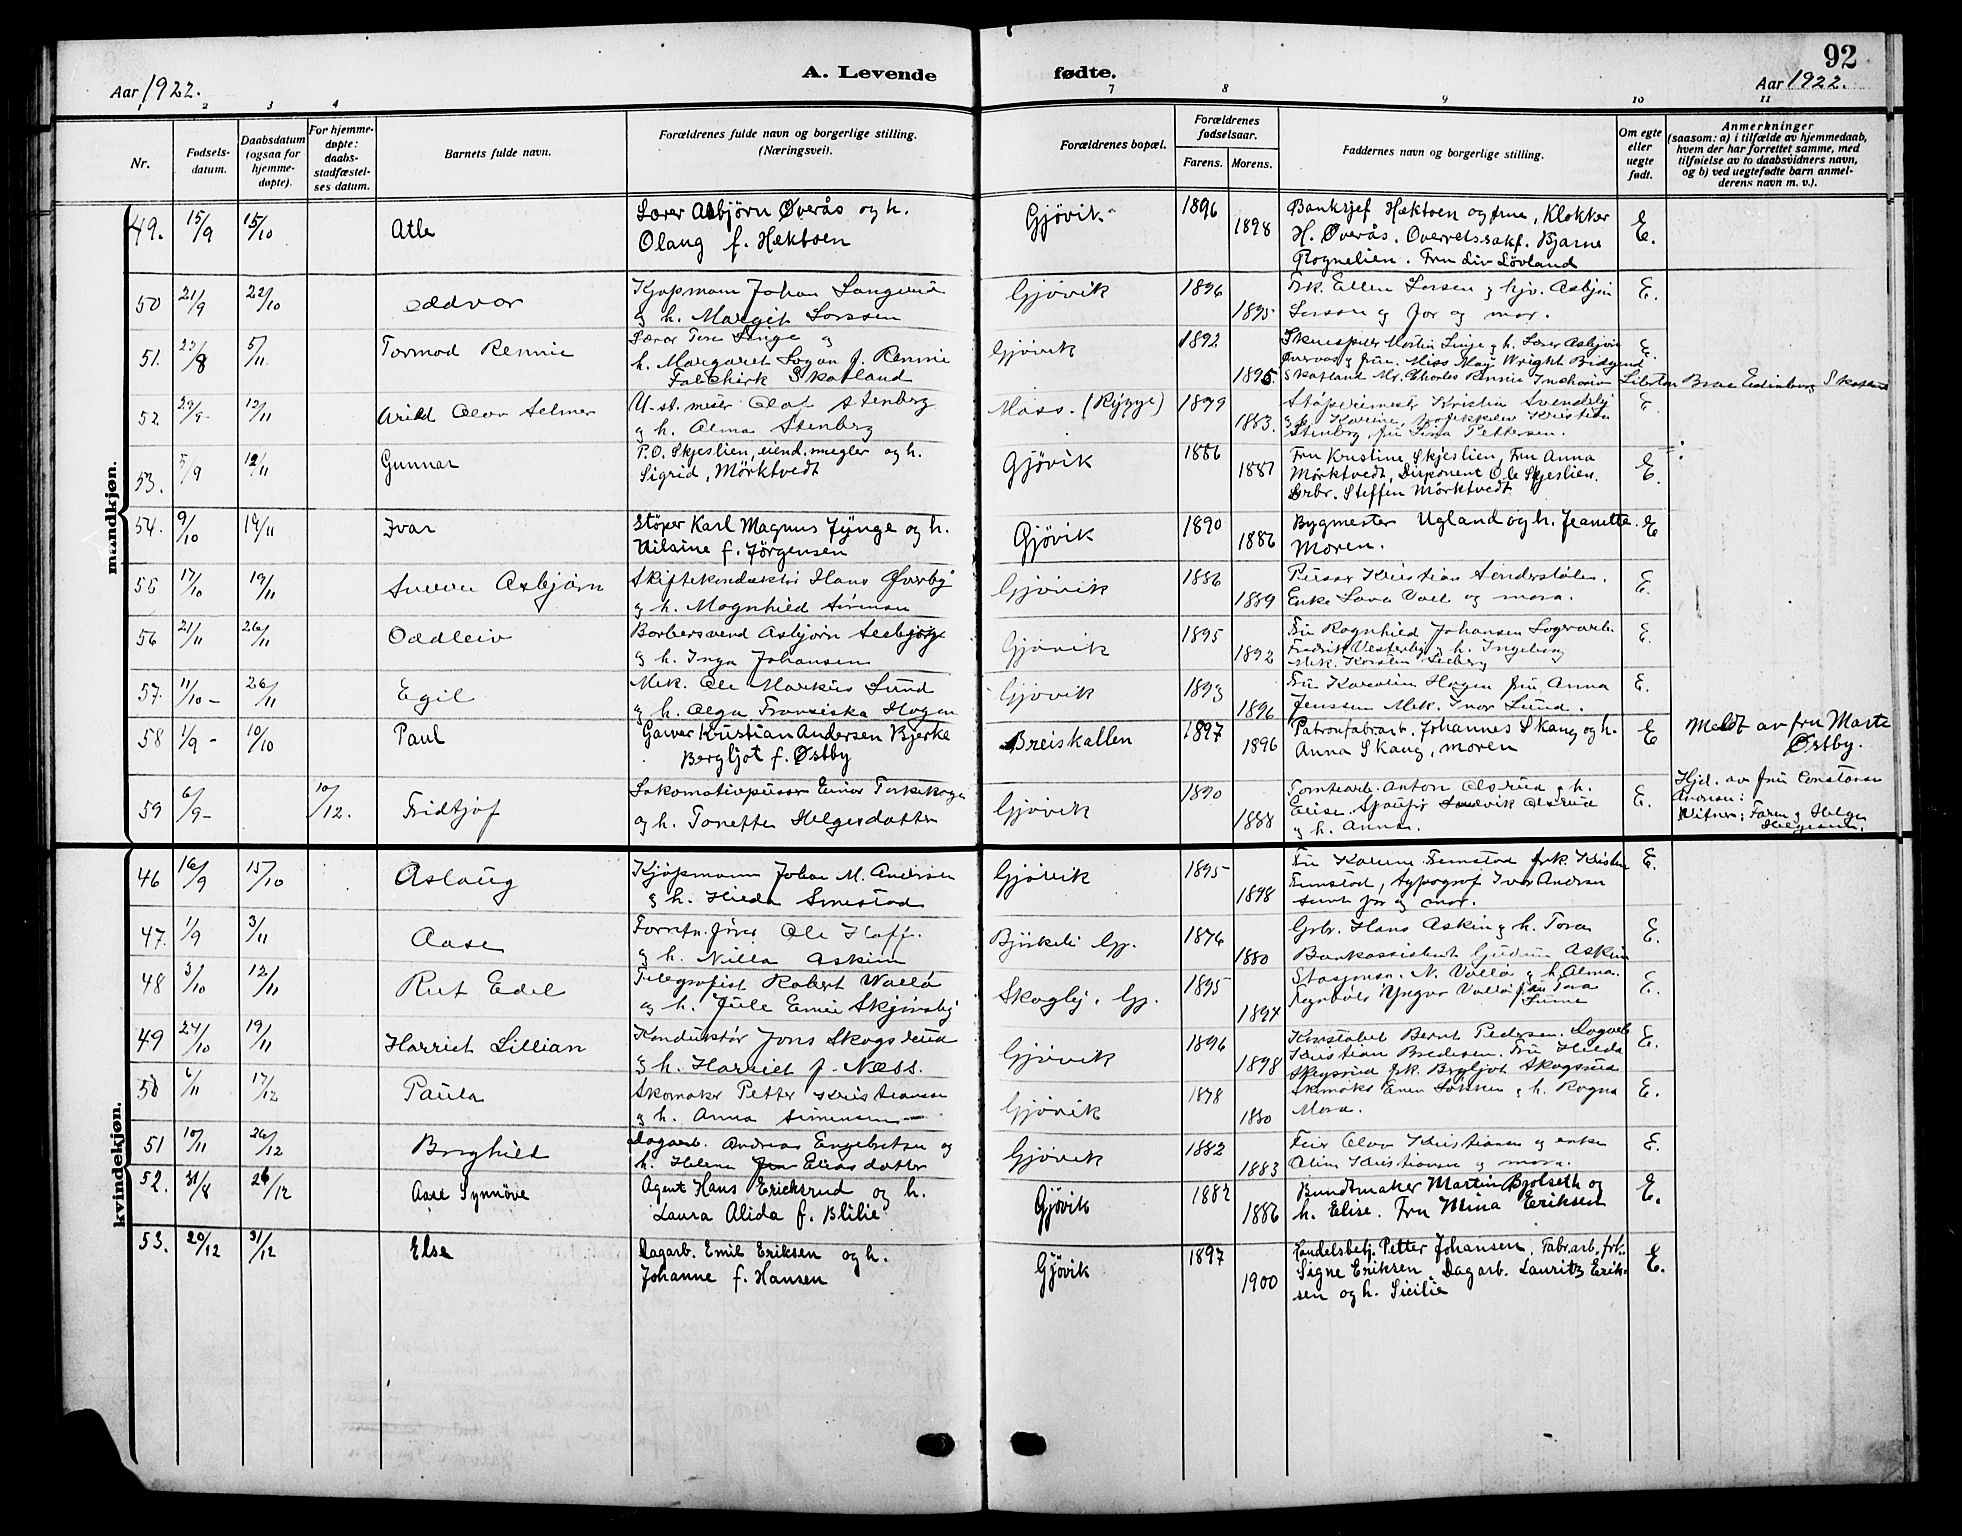 92
A. Levende fødte.
Aar 1922.
Aar 1922.
1 2 3 4 7 8 9 10 11
Nr.
Fødsels-
datum.
Daabsdatum
(ogsaa for
hjemme-
døpte).
For hjemme-
døpte:
daabs-
stadfæstel-
ses datum.
Barnets fulde navn.
Forældrenes fulde navn og borgerlige stilling.
(Næringsvei).
Forældrenes bopæl.
Forældrenes
fødselsaar.
Farens. Morens.
Faddernes navn og borgerlige stilling.
Om egte
eller
uegte
født.
Anmerkninger
(saasom: a) i tilfælde av hjemmedaab,
hvem der har forrettet samme, med
tilføielse av to daabsvidners navn,
og b) ved uegtefødte barn anmel-
derens navn m. v.).
mandkjøn.
49. 15/9 15/10 Atle
Lærer Asbjörn Øverås og h.
Olaug f. Hektoen
Gjövik 1896 1898
Banksjef Hektoen og frue, Klokker
H. Øverås. Overretssakf. Bjarne
Rognelien. Fru Liv Lövland
E.
50 21/9 22/10 Oddvar
Kjøpmann Johan
og h. Margit Larssen
Gjövik 1896 1895
Frk. Ellen Larsen
og far og mor.
E.
51. 5/11 Tormod Rennie
Lærer Tore Linge og
h. Margaret Logan f. Rennie
Falchirk Skotland
Gjövik 1892 1895
Skuespiller Martin Linge og h. Lærer Asbjörn
Øveraas og frue. Miss May Wright Bridgend
Skotland Mr. Charles Rennie Liberton Brae Edinburg Skotland
E.
52. 29/9 12/11 Arild Olav Selmer
Olaf Stenberg
og h. Alma Stenberg
Moss. (Rygge) 1899 1883.
Støperimestr Kristian
Stenberg, fru Lina Pettersen.
E
53. 5/9 12/11 Gunnar
P.O. Skjeslien, eiend.megler og h.
Sigrid, Mörktvedt
Gjövik 1886 1887
Fru Kristine Skjeslien, Fru Anna
Mörktvedt, Disponent Ole Skjeslien.
Grbr. Steffen Mörktvedt
E.
54. 9/10 19/11 Ivar
Stöper Karl Magnus Jynge og h.
Nilsine f. Jörgensen
Gjövik 1890 1886
Bygmester Ugland og h. Jeanette.
Moren.
E
55 17/10 19/11 Sverre Asbjørn
Skiftekonduktør Hans Øverby
og h. Magnhild
Gjövik 1886 1889
Pusser Kristian
Enke og mora.
E.
56 21/11 26/11 Oddleiv
Barbersvend Asbjørn
og h. Inga Johansen
Gjövik 1895 1892
Fru Ragnhild Johansen
Fredrik Vesterby og h. Ingeborg
Mek. Karsten
E.
57. 11/10- 26/11 Egil
Mek. Ole Markus Lund
og h. Olga Fransiska Hagen
Gjövik 1893 1896
Fru Karoline Hagen fru Anna
Jenssen Mek. Ivar Lund.
E.
58 1/9- 10/10 Paul
Garver Kristian Andersen Bjerke
Bergljot f. Østby
Breiskallen 1897 1896
Patronfabrarb. Johannes Skaug og h.
Anna Skaug, moren
E
Meldt av fru Marte
Østby.
59 6/9- 10/12. Fridtjof
Lokomotivpusser Einar
og h. Tonette Helgesdatter
Gjövik 1890 1888
Tomtearb. Anton Olsrud og h.
Elise. Ludvik Olsrud
og h. Anna.
E.
Hjd. av fru Constanse
Andersen:
Vitner: Faren og Helge
Helgesen.
kvindekjøn.
46 16/9 15/10 Aslaug
Kjøpmann Johan M. Andersen
og h. Hilda
Gjövik 1895 1898
Fru Karen frk. Kristine
typograf Ivar Andersen
samt far og mor.
E.
47. 1/9 3/11 Aase
Ole Hoff.
og h. Nilla Askim
Gj. 1876 1880
Grbr. Hans Askim og h. Tora
Bankassistent Gudrun Askim
E.
48 3/10 12/11 Rut Edel
Telegrafist Robert Vallø
og h. Jule Emilie
Gj. 1895 1894
N. Vallø og h. Alma.
Yngvar Vallø fru Tora
E.
49 24/10 19/11 Harriet Lillian
Konduktør Jens Skogsrud
og h. Harriet f. Næss.
Gjövik 1896 1898
Konstabel Bernt Pedersen.
Kristian Bredesen. Fru Hilda
Skogsrud frk. Bergljot Skogsrud
E.
50 6/11 17/12 Paula
Skomaker Petter Kristiansen
og h. Anna Simensen
Gjövik 1878 1880
Skomaker og h. Ragna
Mora.
E.
51 10/11 26/12 Borghild
Dagarb. Andreas Engebretsen og
h. Helene Eliasdatter
Gjövik 1882 1883
Feier Olav Kristiansen og enke
Kristiansen og mora.
E.
52. 31/8 26/12 Aase Synnöve
Agent Hans Ericksrud og h.
Laura Alida f. Blilie
Gjövik 1882 1886
Bundtmaker Martin Bjolseth og
h. Elise. Fru Mina Eriksen
E.
53. 20/12 31/12 Else
Dagarb. Emil Eriksen og h.
Johanne f. Hansen
Gjövik 1897 1900
Handelsbetj. Petter Johansen. Fabrarb. frk.
Signe Eriksen Dagarb. Lauritz Erik-
sen og h. Sicilie
E.